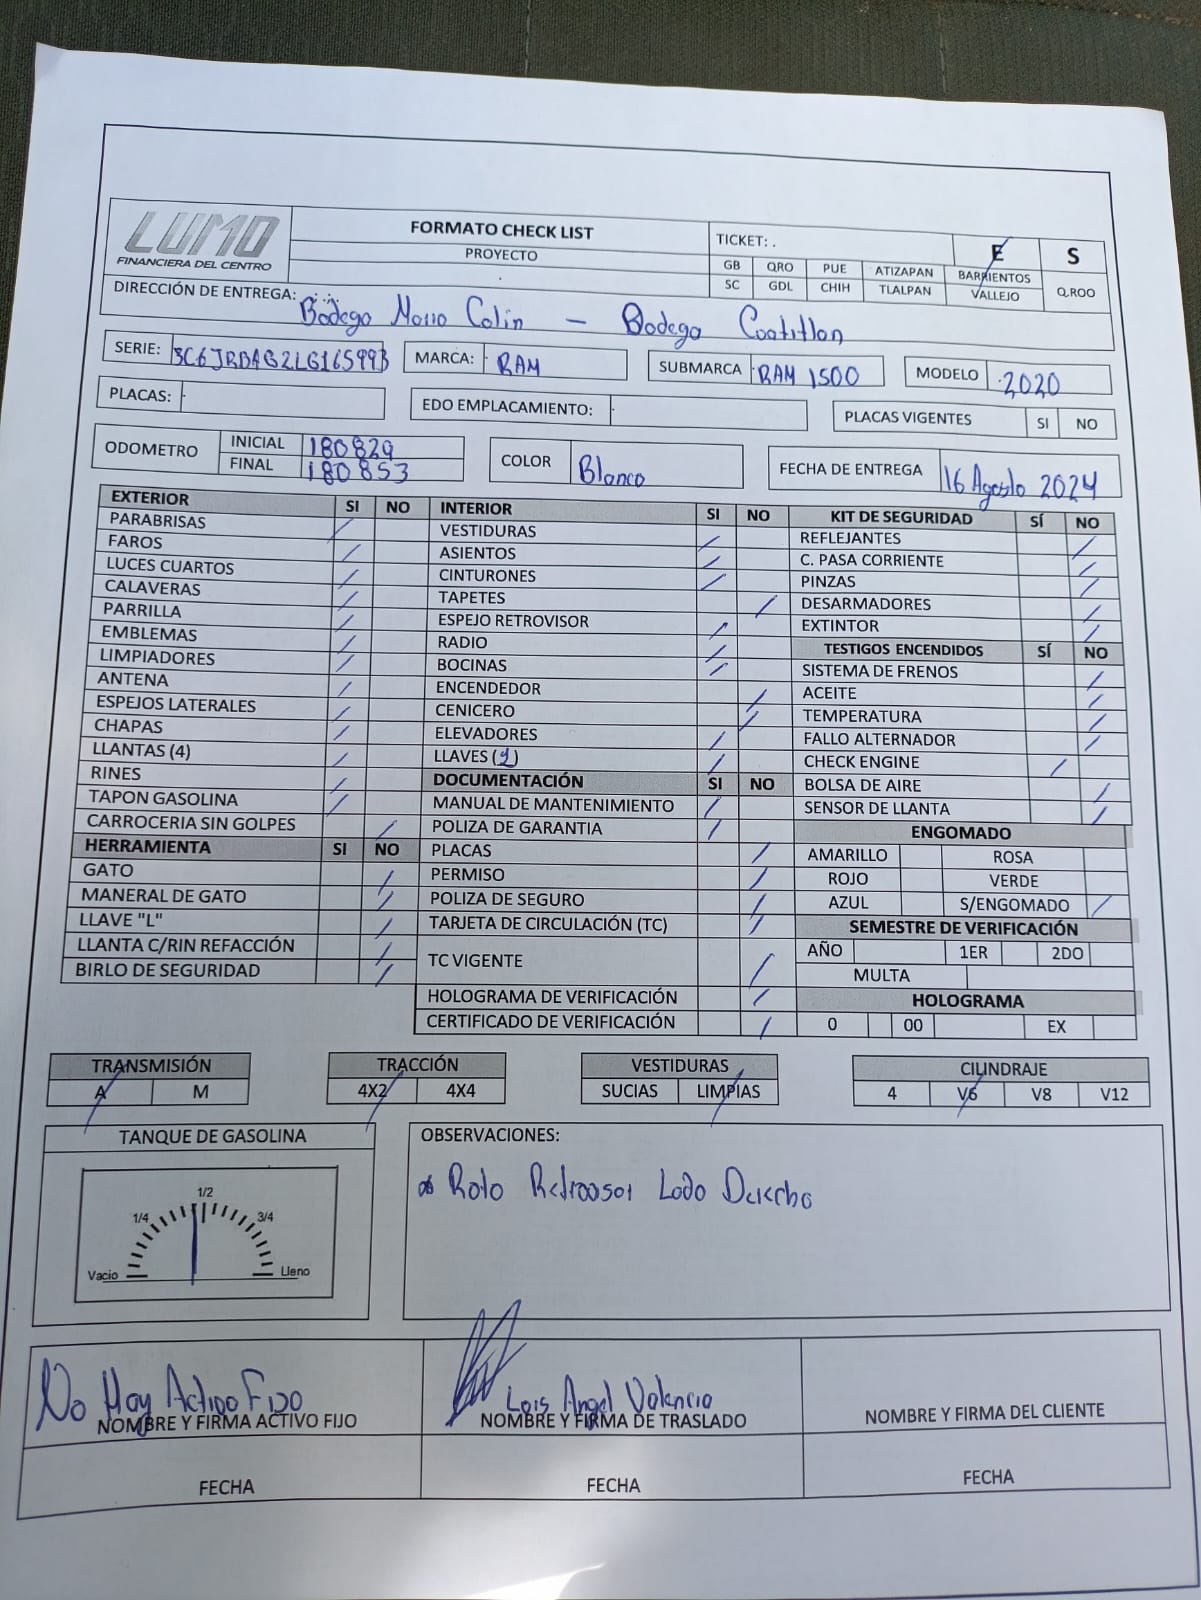 LUMO
FINANCIERA DEL CENTRO
FORMATO CHECK LIST
PROYECTO
TICKET: .
E S
GB QRO PUE ATIZAPAN BARRIENTOS
SC GDL CHIH TLALPAN VALLEJO Q.ROO
DIRECCIÓN DE ENTREGA: Bodega Mario Colin - Bodega Coatitlan
SERIE: 3C6JRBAG2LG165993 MARCA: RAM SUBMARCA RAM 1500 MODELO 2020
PLACAS: EDO EMPLACAMIENTO: PLACAS VIGENTES SI NO
ODOMETRO INICIAL 180829 COLOR Blanco FECHA DE ENTREGA 16 Agosto 2024
FINAL 180853
EXTERIOR SI NO
PARABRISAS /
FAROS /
LUCES CUARTOS /
CALAVERAS /
PARRILLA /
EMBLEMAS /
LIMPIADORES /
ANTENA /
ESPEJOS LATERALES /
CHAPAS /
LLANTAS (4) /
RINES /
TAPON GASOLINA /
CARROCERIA SIN GOLPES /
HERRAMIENTA SI NO
GATO /
MANERAL DE GATO /
LLAVE "L" /
LLANTA C/RIN REFACCIÓN /
BIRLO DE SEGURIDAD /
INTERIOR SI NO
VESTIDURAS /
ASIENTOS /
CINTURONES /
TAPETES /
ESPEJO RETROVISOR /
RADIO /
BOCINAS /
ENCENDEDOR /
CENICERO /
ELEVADORES /
LLAVES ( ) /
DOCUMENTACIÓN SI NO
MANUAL DE MANTENIMIENTO /
POLIZA DE GARANTIA /
PLACAS /
PERMISO /
POLIZA DE SEGURO /
TARJETA DE CIRCULACIÓN (TC) /
TC VIGENTE /
HOLOGRAMA DE VERIFICACIÓN /
CERTIFICADO DE VERIFICACIÓN /
KIT DE SEGURIDAD SÍ NO
REFLEJANTES /
C. PASA CORRIENTE /
PINZAS /
DESARMADORES /
EXTINTOR /
TESTIGOS ENCENDIDOS SÍ NO
SISTEMA DE FRENOS /
ACEITE /
TEMPERATURA /
FALLO ALTERNADOR /
CHECK ENGINE /
BOLSA DE AIRE /
SENSOR DE LLANTA /
ENGOMADO
AMARILLO ROSA
ROJO VERDE
AZUL S/ENGOMADO /
SEMESTRE DE VERIFICACIÓN
AÑO 1ER 2DO
MULTA
HOLOGRAMA
0 00 EX
TRANSMISIÓN
A M
TRACCIÓN
4X2 4X4
VESTIDURAS
SUCIAS LIMPIAS
CILINDRAJE
4 V6 V8 V12
TANQUE DE GASOLINA
Vacio 1/4 1/2 3/4 Lleno
OBSERVACIONES:
Roto Retrovisor Lado Derecho
No Hay Activo Fijo
NOMBRE Y FIRMA ACTIVO FIJO
FECHA
Luis Angel Valencia
NOMBRE Y FIRMA DE TRASLADO
FECHA
NOMBRE Y FIRMA DEL CLIENTE
FECHA